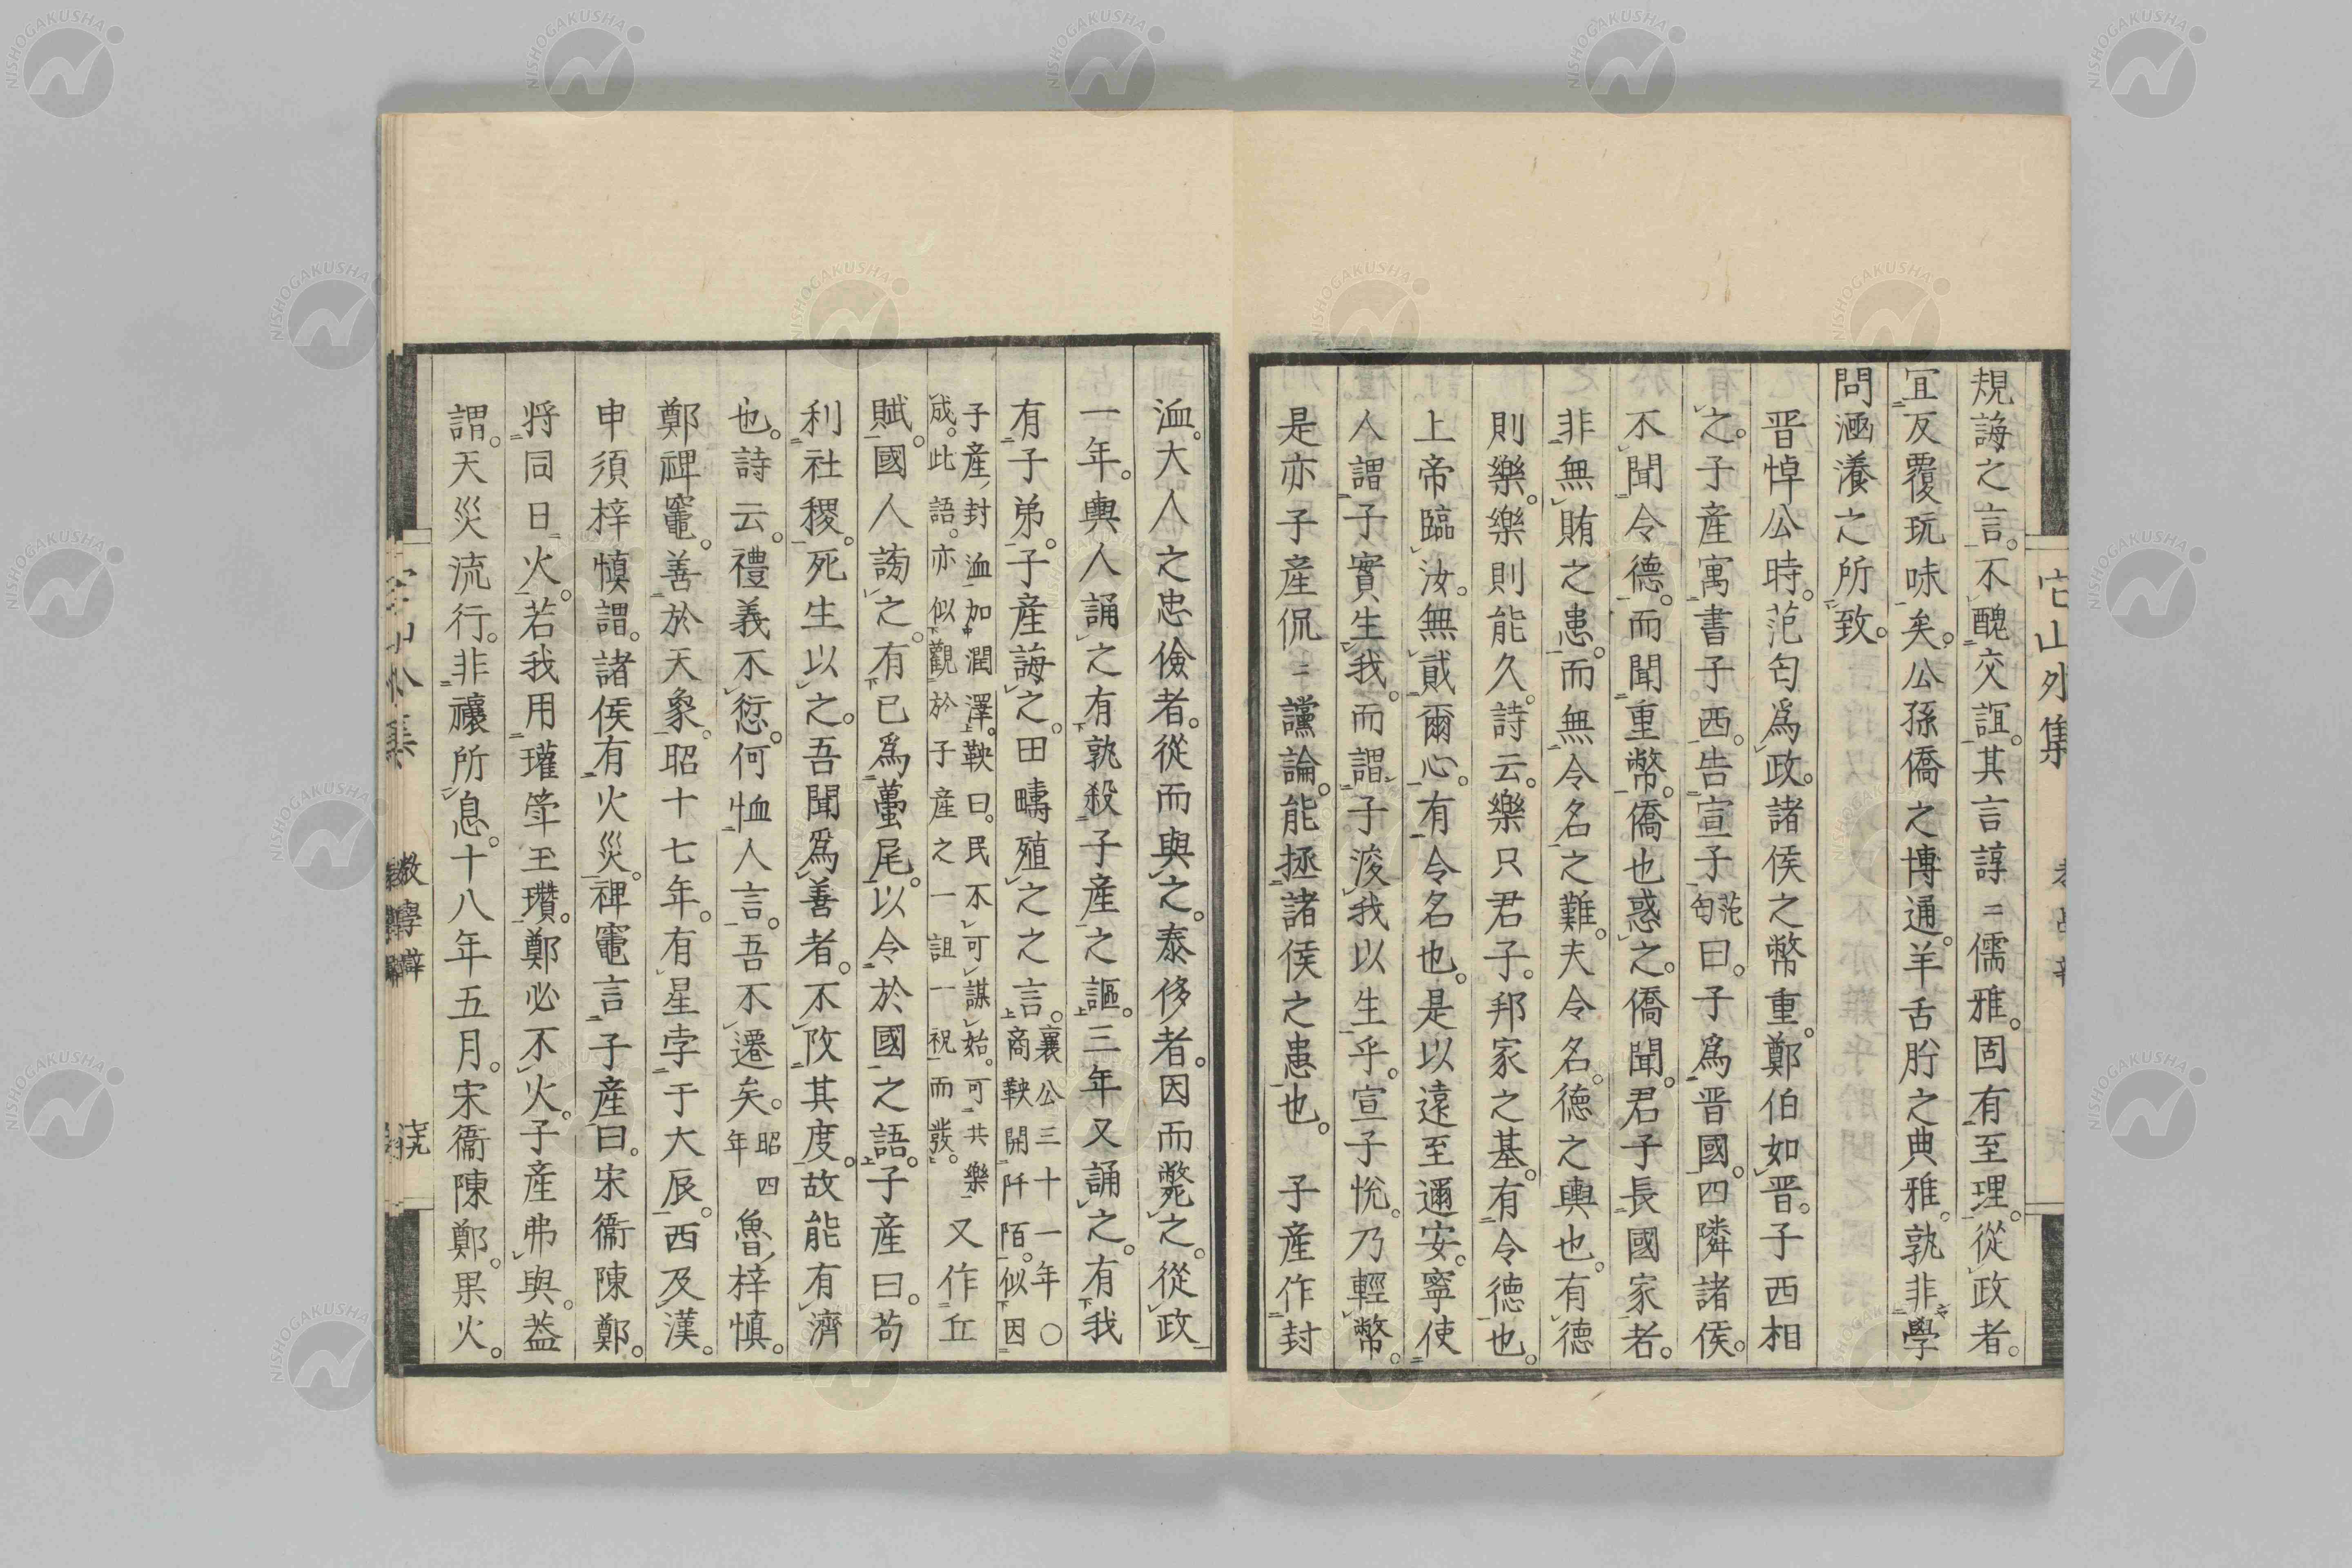 規誨之言。不醜交誼。其言諄〻儒雅。固有至理。從政者。
宜反覆玩味矣。公孫僑之博通。羊舌肸之典雅。孰非學
問涵瀁之所致。
晋悼公時。范匄爲政。諸侯之幣重。鄭伯如晋。子西相
之。子產寓書子西。告宣子范匄曰。子爲晋國。四隣諸侯。
不聞令德。而聞重幣。僑也惑之。僑聞。君子長國家者。
非無賄之患。而無令名之難。夫令名。德之輿也。有德
則樂。樂則能久。詩云。樂只君子。邦家之基。有令德也。
上帝臨汝。無貳爾心。有令名也。是以遠至邇安。寧使
人謂子實生我。而謂子浚我以生乎。宣子悅。乃輕幣。
是亦子產侃〻讜論。能拯諸侯之患也。 子產作封
洫。大人之忠儉者。從而與之。泰侈者。因而斃之。從政
一年。輿人誦之有孰殺子產之謳。三年又誦之。有我
有子弟。子產誨之。田疇殖之之言。襄公三十一年〇商鞅開阡陌。似因
子產封洫加潤澤。鞅曰。民不可謀始。可共樂成。此語。亦似觀於子產之一詛一祝而發。又作丘
賦。國人謗之。有已爲蠆尾。以令於國之語。子產曰。苟
利社稷。死生以之。吾聞爲善者。不改其度。故能有濟
也。詩云。禮義不愆。何恤人言。吾不遷矣。昭四年 魯梓慎。
鄭禆竈。善於天象。昭十七年。有星孛于大辰。西及漢。
申須梓慎謂。諸侯有火災。禆竈言子產曰。宋衞陳鄭。
将同日火。若我用瓘斝玉瓚。鄭必不火。子產弗與。葢
謂。天災流行。非禳所息。十八年五月。宋衞陳鄭。果火。
它山外集
教學辯